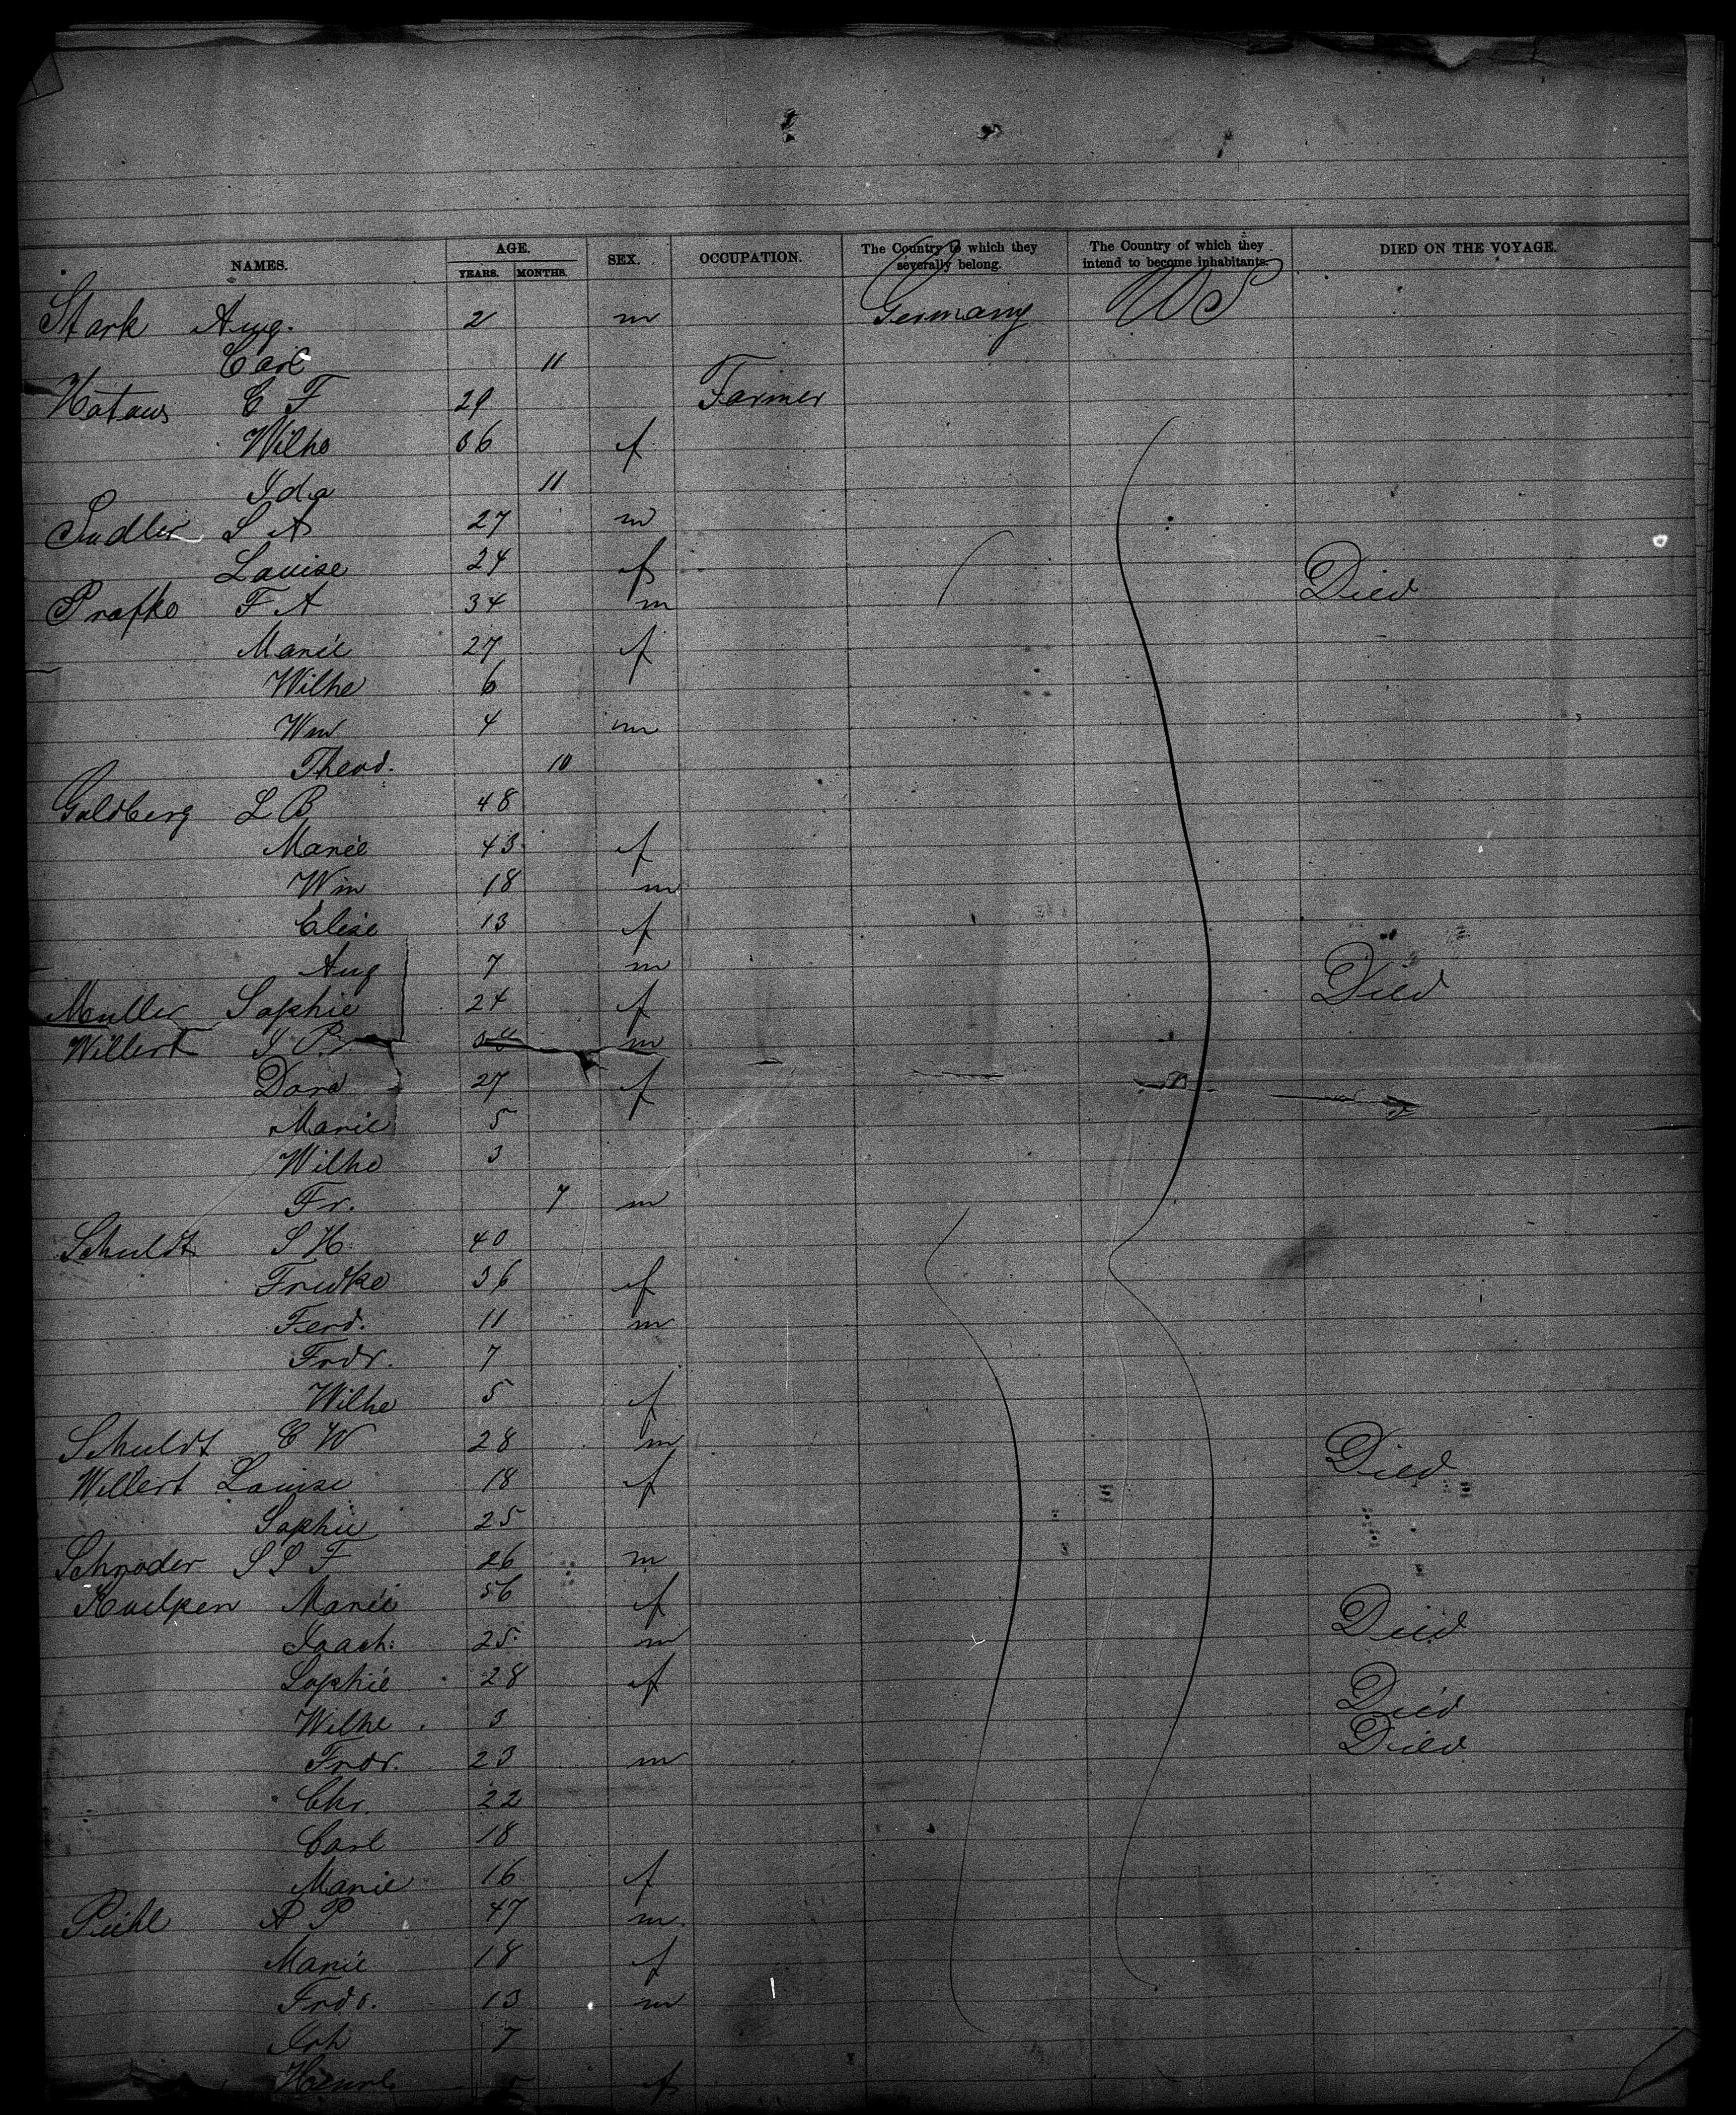 NAMES. AGE. YEARS. MONTHS. SEX. OCCUPATION. The Country to which they severally belong. The Country of which they intend to become inhabitants. DIED ON THE VOYAGE.
Stark Aug. 2 m Germany US
Carl 11
C F 29 Farmer
Wilhe 36 f
Ida 11
S A 27 m
Louise 24 f Died
F A 34 m
Marie 27 f
Wilhe 6
Wm 4 m
Theod. 10
Goldberg L B 48
Marie 43 f
Wm 18 m
Elise 13 f
Aug 7 m Died
Muller Sophie 24 f
Willert m
Dora 27 f
Marie 5
Wilhe 3
Fr. 7 m
Schuldt S H 40
Friedke 36 f
Ferd. 11 m
Frdr. 7
Wilhe 5 f
Schuldt C W 28 m Died
Willert Louise 18 f
Sophie 25
Schroder S S F 26 m
Marie 56 f Died
Joach: 25 m
Sophie 28 f Died
Wilhe 3 Died
Frdr. 23 m
Chr. 22
Carl 18
Marie 16 f
Piehl A P 47 m
Marie 18 f
Frdr. 13 m
7
f